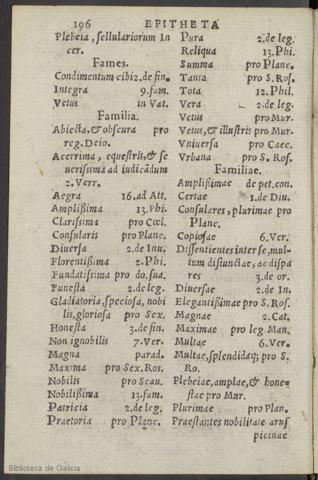 196 EPITHETA
Plebeia, sellulariorum In
cer.
Fames.
Condimentum cibi 2. de fin.
Integra 9. fam.
Vetus in Vat.
Familia.
Abiecta, & obscura pro
reg. Deio.
Acerrima, equestris, & se
uerissima ad iudicãdum
2. Verr.
Aegra 16. ad Att.
Amplißima 13. Phi.
Clarissima pro Cœl.
Consularis pro Planc.
Diuersa 2. de Inu.
Florentißima 2. Phi.
Fundatissima pro do. sua.
Funesta 2. de leg.
Gladiatoria, speciosa, nobi
lis, gloriosa pro Sex.
Honesta 3. de fin.
Non ignobilis 7. Ver.
Magna parad.
Maxima pro Sex. Ros.
Nobilis pro Scau.
Nobilißima 13. fam.
Patricia 2. de leg.
Praetoria pro Planc.
Pura 2. de leg.
Reliqua 13. Phi.
Summa pro Planc.
Tanta pro S. Ros.
Tota 12. Phil.
Vera 2. de leg.
Vetus pro Mur.
Vetus, & illustris pro Mur.
Vniuersa pro Caec.
Vrbana pro S. Ros.
Familiae.
Amplißimae de pet. con.
Certae 1. de Diu.
Consulares, plurimae pro
Planc.
Copiosae 6. Ver.
Dissentientes inter se, mul-
tum disiunctae, ac dispa
res 3. de or.
Diuersae 2. de In.
Elegantißimae pro S. Ros.
Magnae 2. Cat.
Maximae pro leg Man.
Multae 6. Ver.
Multae, splendidaeq; pro S.
Ro.
Plebeiae, amplae, & hone
stae pro Mur.
Plurimae pro Plan.
Praestantes nobilitate arus
picinae
Biblioteca de Galicia